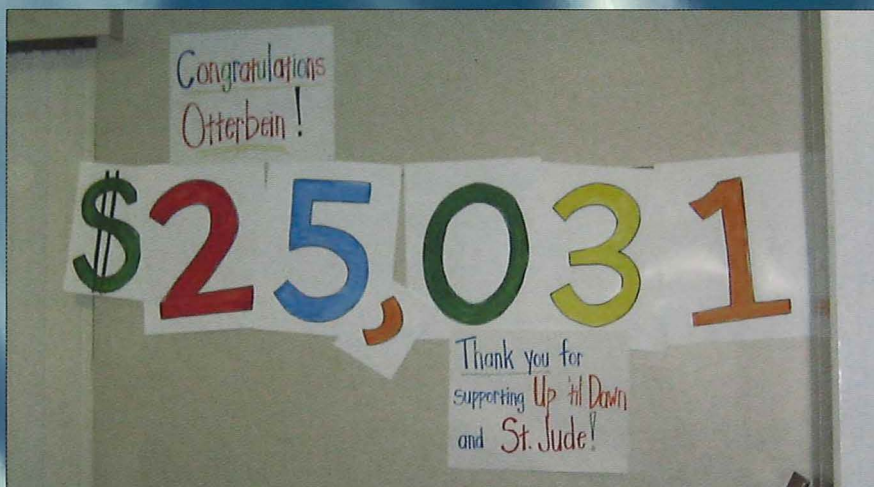 Congratulations
Otterbein!
$25,031
Thank you for
supporting Up 'til Dawn
and St. Jude!